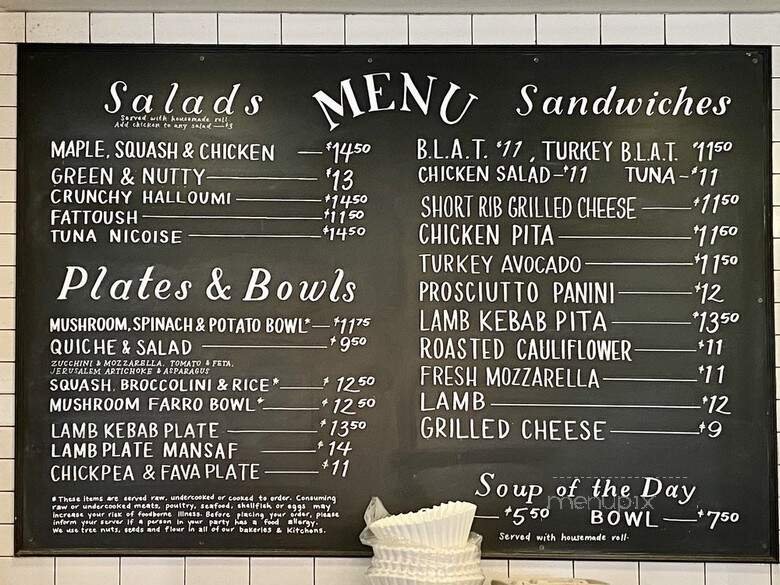 MENU
Salads
Served with housemade roll.
Add chicken to any salad — $3
MAPLE, SQUASH & CHICKEN — $14.50
GREEN & NUTTY — $13
CRUNCHY HALLOUMI — $14.50
FATTOUSH — $11.50
TUNA NICOISE — $14.50
Plates & Bowls
MUSHROOM, SPINACH & POTATO BOWL* — $11.75
QUICHE & SALAD — $9.50
ZUCCHINI & MOZZARELLA, TOMATO & FETA,
JERUSALEM ARTICHOKE & ASPARAGUS
SQUASH, BROCCOLINI & RICE* — $12.50
MUSHROOM FARRO BOWL* — $12.50
LAMB KEBAB PLATE — $13.50
LAMB PLATE MANSAF — $14
CHICKPEA & FAVA PLATE — $11
*These items are served raw, undercooked or cooked to order. Consuming
raw or undercooked meats, poultry, seafood, shellfish or eggs may
increase your risk of foodborne illness. Before placing your order, please
inform your server if a person in your party has a food allergy.
We use tree nuts, seeds and flour in all of our bakeries & Kitchens.
Sandwiches
B.L.A.T. $11, TURKEY B.L.A.T. $11.50
CHICKEN SALAD - $11 TUNA - $11
SHORT RIB GRILLED CHEESE — $11.50
CHICKEN PITA — $11.50
TURKEY AVOCADO — $11.50
PROSCIUTTO PANINI — $12
LAMB KEBAB PITA — $13.50
ROASTED CAULIFLOWER — $11
FRESH MOZZARELLA — $11
LAMB — $12
GRILLED CHEESE — $9
Soup of the Day
— $5.50 BOWL — $7.50
Served with housemade roll.
menupix